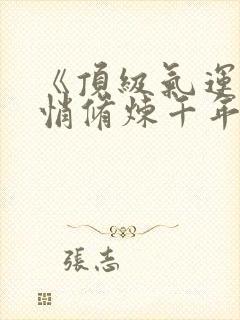 《頂級氣運
悄脩煉千年
張志